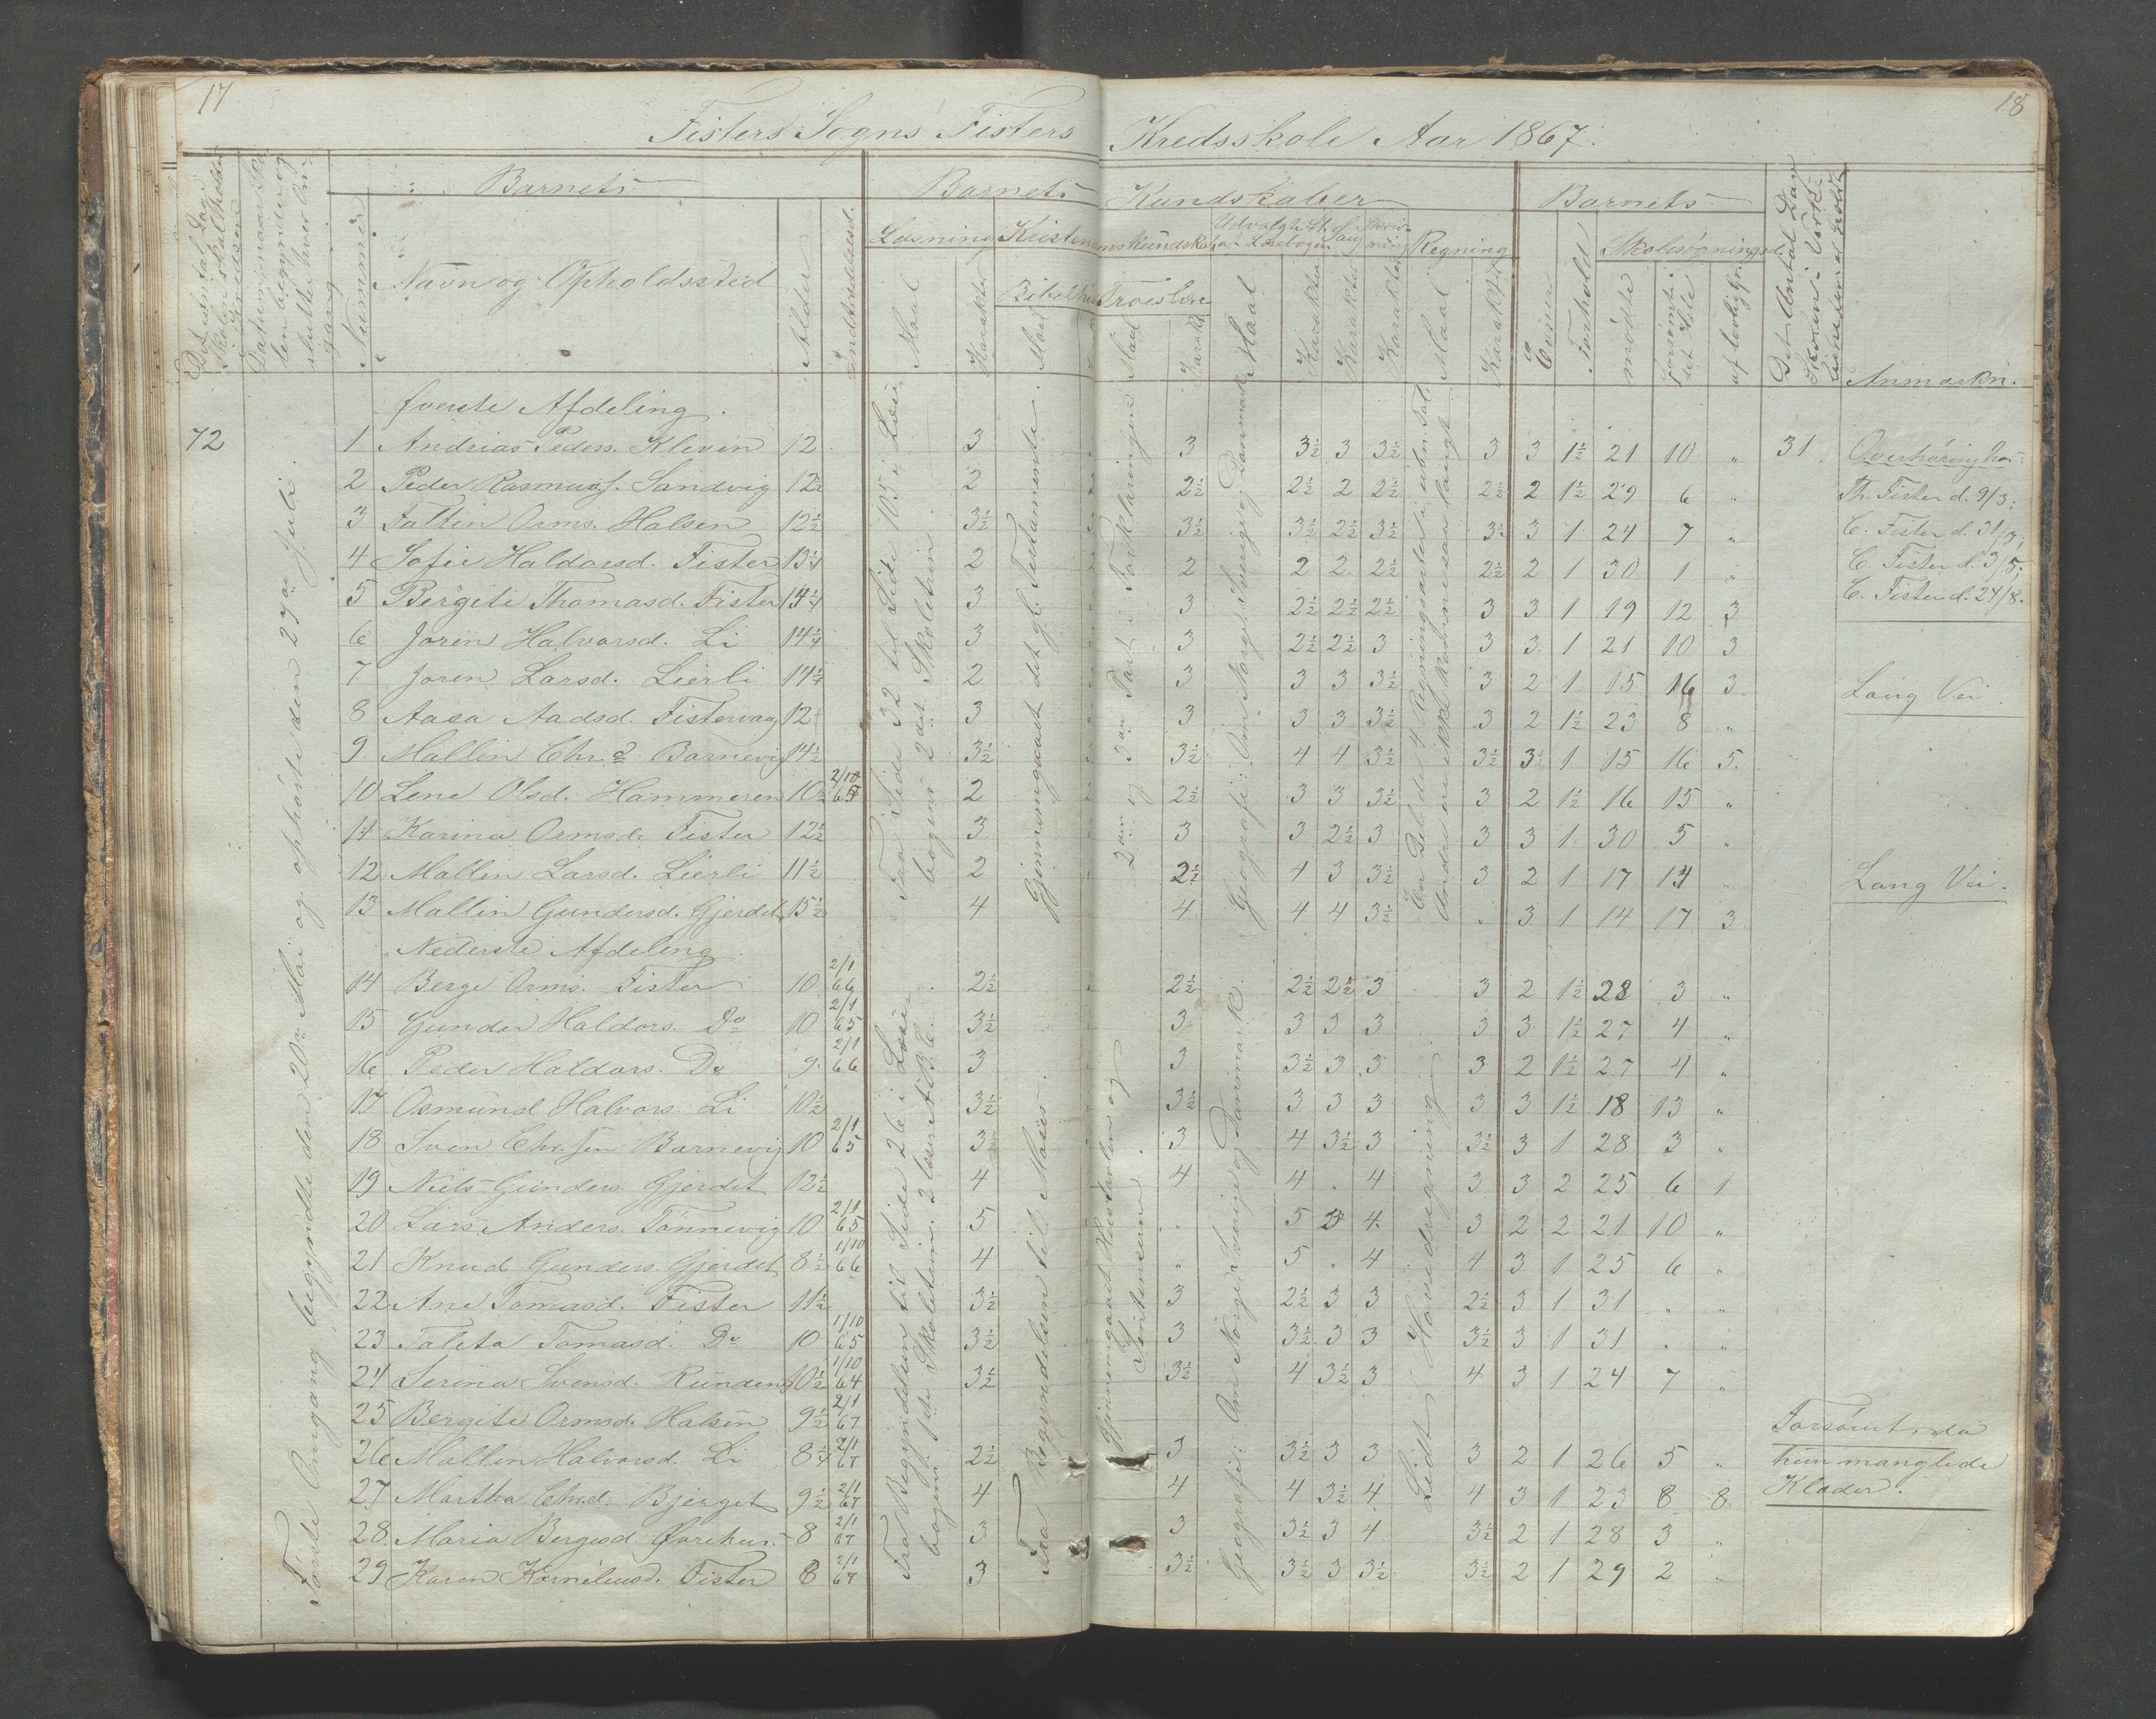 17
18
Fisters Sogns Fisters Kredsskole Aar 1867.
Barnets
Barnets Kundskaber
Barnets
Nummer
Navn og Opholdssted
Alder
Indtrædelsesd.
Læsning
Kristendomskundskab
Udvalgte St. af Læsebogen
Sang
Skrivning
Regning
Evner
Forhold
Skolesøgningsd.
Maal
Karakter
Bibelhist.
Troeslære
mødte
forsømte det Hele
af lovlig Gr.
Anmærkn.
Øverste Afdeling.
72 1 Andrias Peders. Kleven 12 3 3 3½ 3 3½ 3 3 1½ 21 10 " 31 Overhøring hos:
2 Peder Rasmuss. Sandvig 12½ 2 2½ 2½ 2 2½ 2½ 2 1½ 29 6 " Th. Fister d. 9/3;
3 Faltin Orms. Halsen 12½ 3½ 3½ 3½ 2½ 3½ 3½ 3 1 24 7 " C. Fister d. 31/3;
4 Sofie Haldorsd. Fister 13¼ 2 2 2 2 2½ 2½ 2 1 30 1 " C. Fister d. 3/5;
5 Bergite Thomasd. Fister 14¼ 3 3 2½ 2½ 2½ 3 3 1 19 12 3 C. Fister d. 24/8.
6 Joren Halvorsd. Li 14¼ 3 3 2½ 2½ 3 3 3 1 21 10 3
7 Joren Larsd. Lierli 14¼ 2 3 3 3 3½ 3 2 1 15 16 3 Lang Vei
8 Aasa Aadsd. Fistervaag 12 3 3 3 3 3½ 3 2 1½ 23 8 "
9 Mallin Chr.d Barnevig 14½ 3½ 3½ 4 4 3½ 3½ 3½ 1 15 16 5
10 Lene Olsd. Hammeren 10½ 2/10 65 2 2½ 3 3 3½ 3 2 1½ 16 15 "
11 Karina Ormsd. Fister 12½ 3 3 3 2½ 3 3 3 1 30 5 "
12 Mallin Larsd. Lierli 11½ 2 2½ 4 3 3½ 3 2 1 17 14 " Lang Vei.
13 Mallin Gundersd. Gjerdet 15½ 4 4 4 4 3½ " 3 1 14 17 3
Nederste Afdeling
14 Berge Orms. Fister 10 2/1 66 2½ 2½ 2½ 2½ 3 3 2 1½ 28 3 "
15 Gunder Haldors. Do 10 2/1 65 3½ 3 3 3 3 3 3 1½ 27 4 "
16 Peder Haldors. Do 9 2/1 66 3 3 3½ 3 3 3 2 1½ 27 4 "
17 Osmund Halvors. Li 10½ 3½ 3½ 3 3 3 3 3 1½ 18 13 "
18 Sven Chr.sen Barnevig 10 2/1 65 3 3 4 3½ 3 3½ 3 1 28 3 "
19 Niels Gunders. Gjerdet 12½ 4 4 4 " 4 3 3 2 25 6 1
20 Lars Anders. Tønnevig 10 2/1 65 5 " 5 3 4 3 2 2 21 10 "
21 Knud Gunders. Gjerdet 8½ 1/10 66 4 " 5 " 4 4 3 1 25 6 "
22 Ane Tomasd. Fister 11½ 3½ 3 2½ 3 3 2½ 3 1 31 " "
23 Taleta Tomasd. Do 10 1/10 65 3½ 3 3½ 3 3 3½ 3 1 31 " "
24 Serina Svensd. Runden 10½ 1/10 64 3½ 3½ 4 3½ 3 4 3 1 24 7 "
25 Bergite Ormsd. Halsen 9½ 2/1 67
26 Mallin Halvorsd. Li 8¼ 2/1 67 2½ 3 3½ 3 3 3 2 1 26 5 "
27 Martha Chr.d. Bjerget 9½ 2/1 67 4 4 4 3½ 4 4 3 1 23 8 8
28 Maria Bergesd. Øvrehus 8 2/1 67 3 3 3½ 3 4 3½ 2 1 28 3 "
29 Karen Korneliusd. Fister 8 2/1 67 3 3½ 3½ 3 3½ 3½ 2 1 29 2 "
Forsømt, da
hun manglede
Klæder.
Første Omgang begyndte den 20de Mai og ophørte den 27de Juli.
Fra Side 32 til Side 105 i Læse-
bogens 2det Skoletrin.
Gjennemgaaet det gl. Testamente.
2den og 3die Part i Forklaringen
Geografi: Om Norge, Sverige og Danmark
En Del de 4 Regningsarter i uben. Tal.
Andre ere ikke komne saa langt.
Fra Begyndelsen til Side 26 i Læse-
bogens 1ste Skoletrin. 2 læser ABC.
Fra Begyndelsen til Moses.
Gjennemgaaet Hustavlen og
Geografi: Om Norge, Sverige og Danmark.
Lidt Hovedregning.